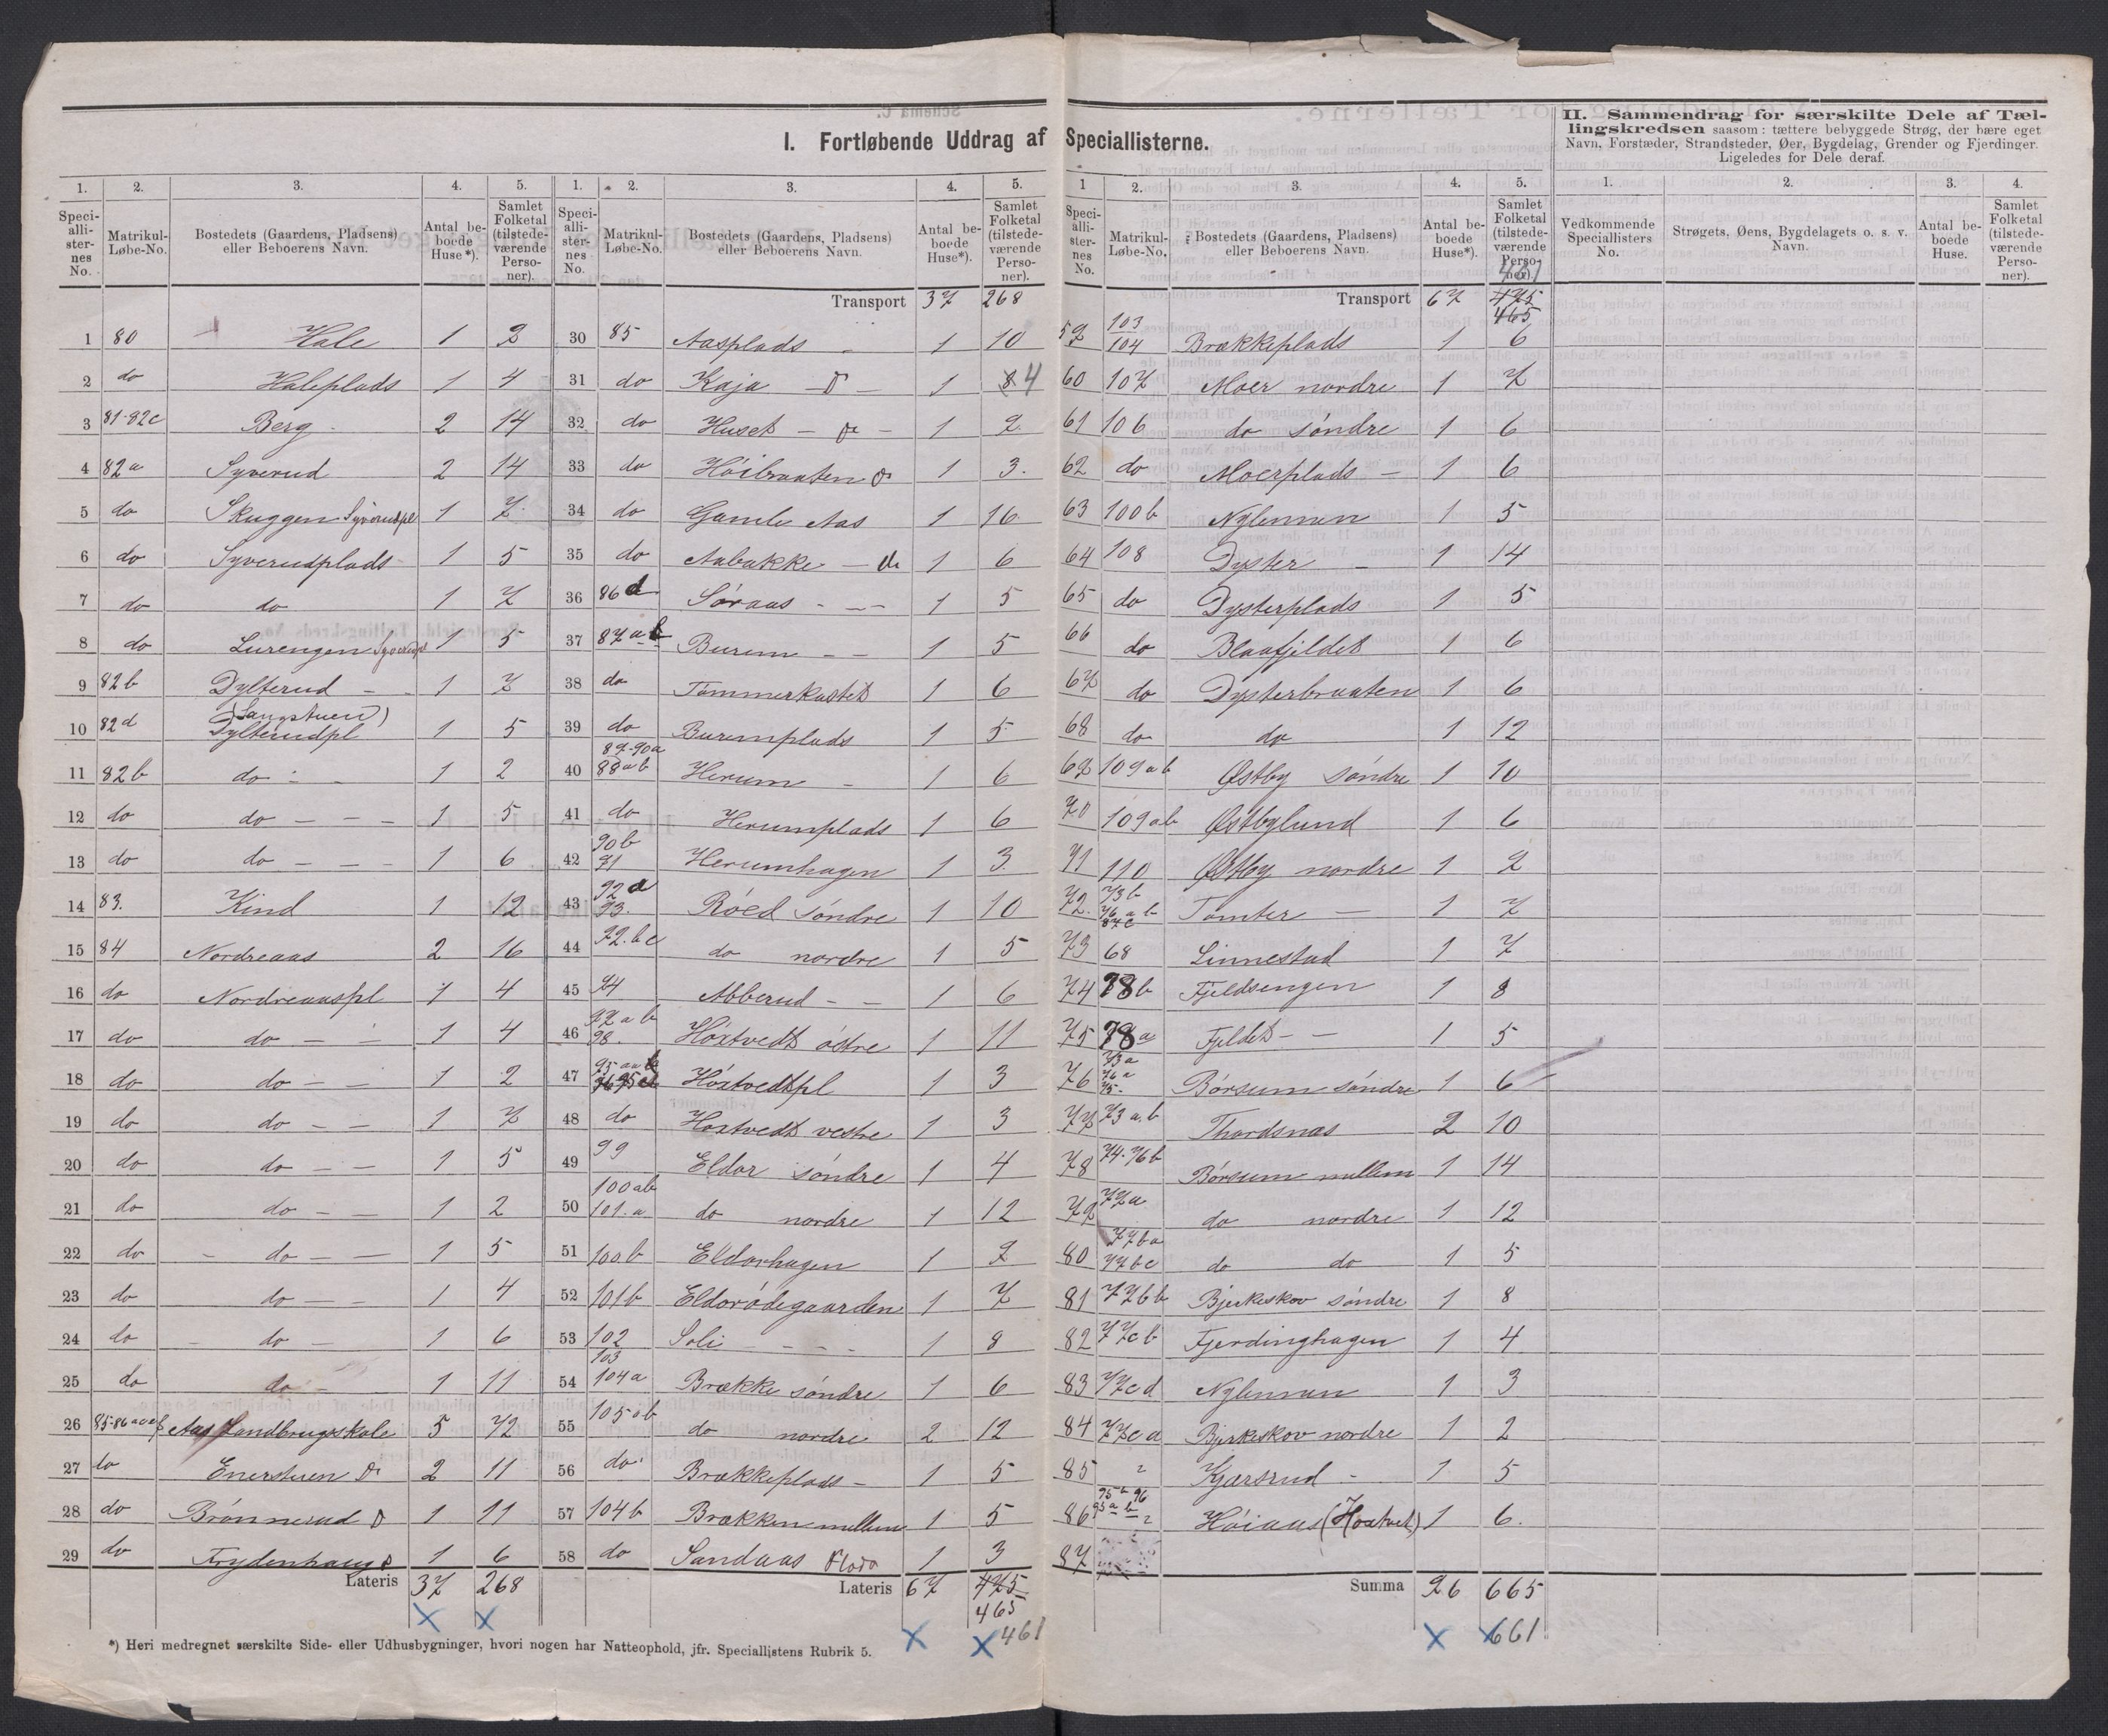 I. Fortløbende Uddrag af Speciallisterne.
II. Sammendrag for særskilte Dele af Tæl-
lingskredsen saasom: tættere bebyggede Strøg, der bære eget
Navn, Forstæder, Strandsteder, Øer, Bygdelag, Grender og Fjerdinger.
Ligeledes for Dele deraf.
1. 2. 3. 4. 5.
Speciallisternes No. Matrikul-Løbe-No. Bostedets (Gaardens, Pladsens) eller Beboerens Navn. Antal beboede Huse*). Samlet Folketal (tilstedeværende Personer).
1 80 Hale 1 2
2 do Haleplads 1 4
3 81-82c Berg 2 14
4 82a Syverud 2 14
5 do Skuggen Syverudpl 1 7
6 do Syverudplads 1 5
7 do do 1 7
8 do Lurengen Syverudpl 1 5
9 82b Dylterud 1 7
10 82d (Langstuen) Dylterudpl 1 5
11 82b do 1 2
12 do do 1 5
13 do do 1 6
14 83. Kind 1 12
15 84 Nordreaas 2 16
16 do Nordreaaspl 1 4
17 do do 1 4
18 do do 1 2
19 do do 1 7
20 do do 1 5
21 do do 1 2
22 do do 1 5
23 do do 1 4
24 do do 1 6
25 do do 1 11
26 85-86 Aas Landbrugsskole 5 72
27 do Enerstuen 2 11
28 do Brønnerud 1 11
29 do Frydenhaug 1 6
Lateris 37 268
1. 2. 3. 4. 5.
Speciallisternes No. Matrikul-Løbe-No. Bostedets (Gaardens, Pladsens) eller Beboerens Navn. Antal beboede Huse*). Samlet Folketal (tilstedeværende Personer).
Transport 37 268
30 85 Aasplads 1 10
31 do Kaja 1 8 4
32 do Huset 1 9
33 do Höibraaten 1 3.
34 do Gamle Aas 1 16
35 do Aabakke 1 6
36 86d Søraas 1 5
37 87ab Burum 1 5
38 do Tømmerkastet 1 6
39 do Burumplads 1 5
40 89-90a 88ab Herum 1 6
41 do Herumplads 1 6
42 90b 91 Herumhagen 1 3.
43 92a 93. Røed søndre 1 10
44 92.bc do nordre 1 5
45 94 Abberud 1 6
46 97ab 98. Höxtvedt østre 1 11
47 Höxtvedtpl 1 3
48 do Hoxtvedt vestre 1 3
49 99 Eldor søndre 1 4
50 100ab 101.a do nordre 1 12
51 100b Eldorhagen 1 9
52 101b Eldorødegaarden 1 7
53 102 Soli 1 8
54 103 104a Brække søndre 1 6
55 105ab do nordre 2 12
56 do Brækkeplads 1 5
57 104b Brækken mellem 1 5
58 do Sandaas 1 3
Lateris 67 475
465
461
*) Heri medregnet særskilte Side- eller Udhusbygninger, hvori nogen har Natteophold, jfr. Speciallistens Rubrik 5.
1 2. 3. 4. 5.
Speciallisternes No. Matrikul-Løbe-No. Bostedets (Gaardens, Pladsens) eller Beboerens Navn. Antal beboede Huse*). Samlet Folketal (tilstedeværende Personer).
461
Transport 67 475
465
59 103 104 Brækkeplads 1 6
60 107 Moer nordre 1 7
61 106 do søndre 1 6
62 do Moerplads 1 6
63 100b Nylennen 1 5
64 108 Dyster 1 14
65 do Dysterplads 1 5
66 do Blaafjeldet 1 6
67 do Dysterbraaten 1 6
68 do do 1 12
69 109ab Østby søndre 1 10
70 109ab Østbylund 1 6
71 110 Østby nordre 1 2
72. 73b 76ab 87c Tomter 1 7
73 68 Linnestad 1 7
74 78b Fjeldsengen 1 8
75 78a Fjeldet 1 5
76 73a 76a 75 Børsum søndre 1 6
77 73a.b Thordsnæs 2 10
78 74-76b Børsum mellem 1 14
79 77a do nordre 1 12
80 77ba 77bc do do 1 5
81 77bb Bjerkeskov søndre 1 8
82 77cb Fjerdinghagen 1 4
83 77cd Nylennen 1 3
84 77ca Bjerkeskov nordre 1 2
85 Kjærsrud 1 5
86 Høiaas (Hoxtvet) 1 6.
87
Summa 96 665
661
1. 2. 3. 4.
Vedkommende Speciallisters No. Strøgets, Øens, Bygdelagets o. s. v. Navn. Antal beboede Huse. Samlet Folketal (tilstedeværende Personer).